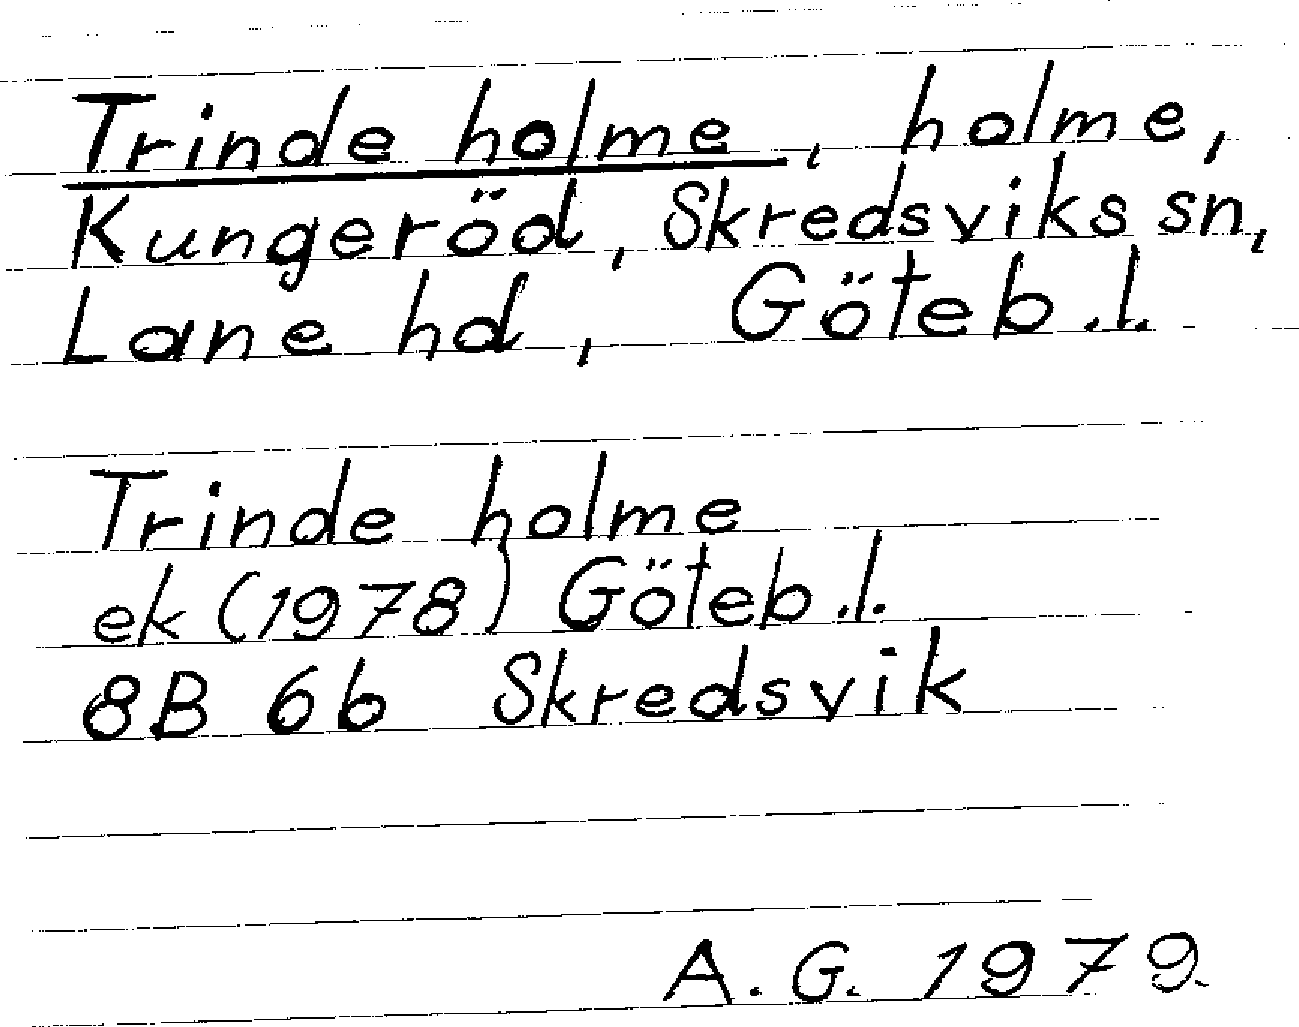 Trinde holme, holme,
Kungeröd, Skredsviks sn,
Lane hd, Göteb.l.
Trinde holme
ek (1978) Göteb.l.
8B 6b Skredsvik
A.G. 1979.